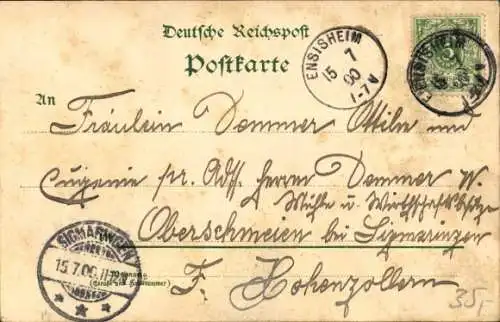 Deutsche Reichspost
Postkarte
ENSISHEIM
15 7
00
1-7 N
ENSISHEIM
An Fräulein Dommer Ottilie und
Eugenie pr. Ads. Herrn Dommer W.
Mühle u. Wirthschaftsbesitzer
Oberschmeien bei Sigmaringen
F. Hohenzollern
SIGMARINGEN
15.7.00.
35,-